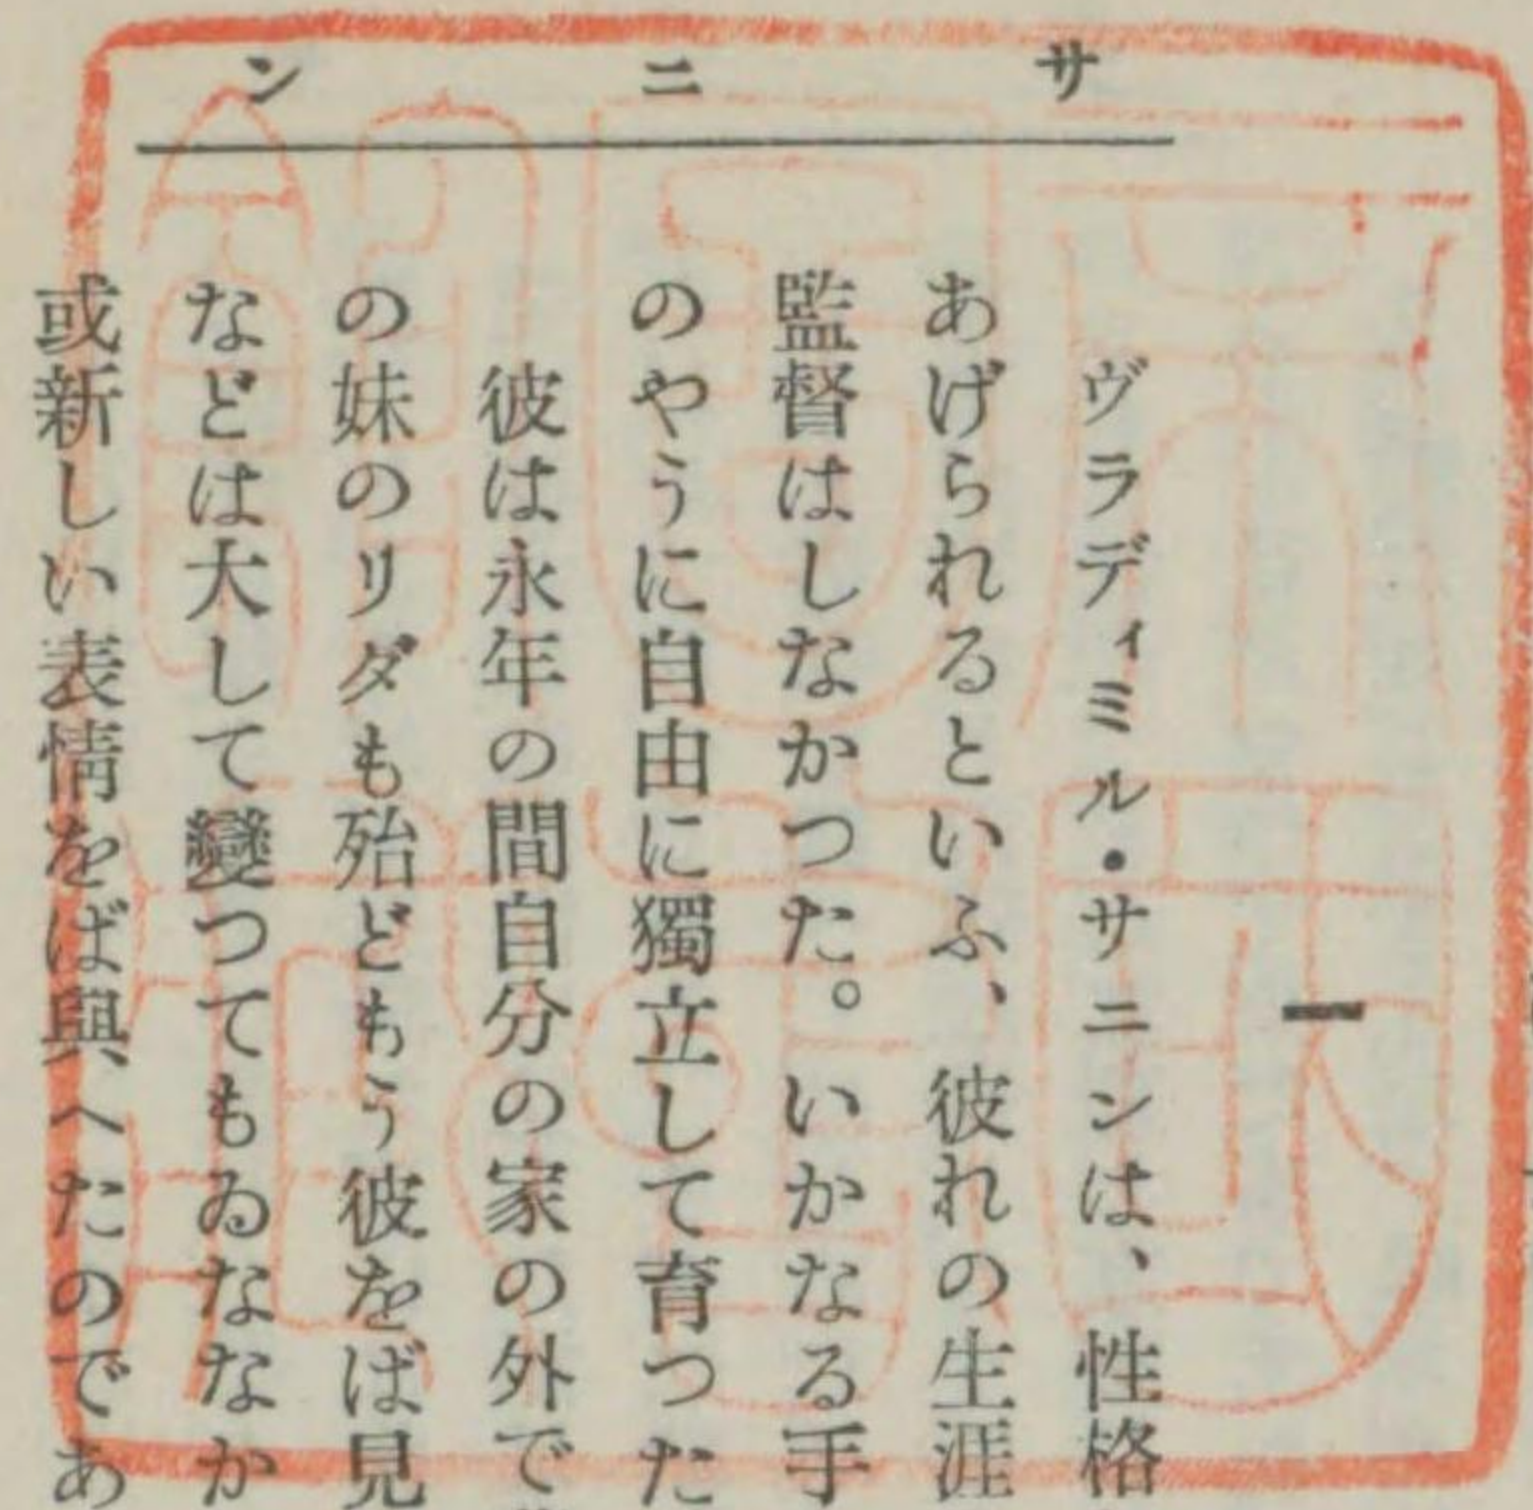 サニン
一
ヴラディミル・サニンは、性格
あげられるといふ、彼れの生涯
監督はしなかつた。いかなる手
のやうに自由に獨立して育つた
彼は永年の間自分の家の外で
の妹のリダも殆どもう彼をば見
などは大して變つてもゐななか
或新しい表情をば與へたのであ